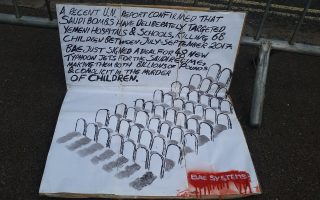 A RECENT U.N. REPORT CONFIRMED THAT
SAUDI BOMBS HAVE DELIBERATELY TARGETED
YEMEN HOSPITALS & SCHOOLS, KILLING 68
CHILDREN BETWEEN JULY-SEPTEMBER 2017
BAE JUST SIGNED A DEAL FOR 48 NEW
TYPHOON JETS FOR THE SAUDI REGIME,
MAKING THEM BOTH BILLIONS OF POUNDS
& COMPLICIT IN THE MURDER
OF CHILDREN.
BAE SYSTEMS